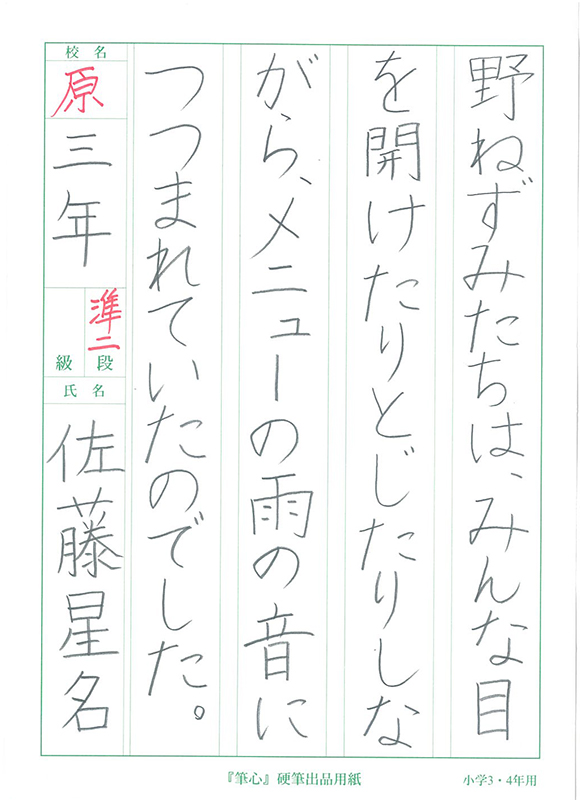 野ねずみたちは、みんな目
を開けたりとじたりしな
がら、メニューの雨の音に
つつまれていたのでした。
校名
原
三年
準二
級
段
氏名
佐藤星名
『筆心』硬筆出品用紙
小学3・4年用